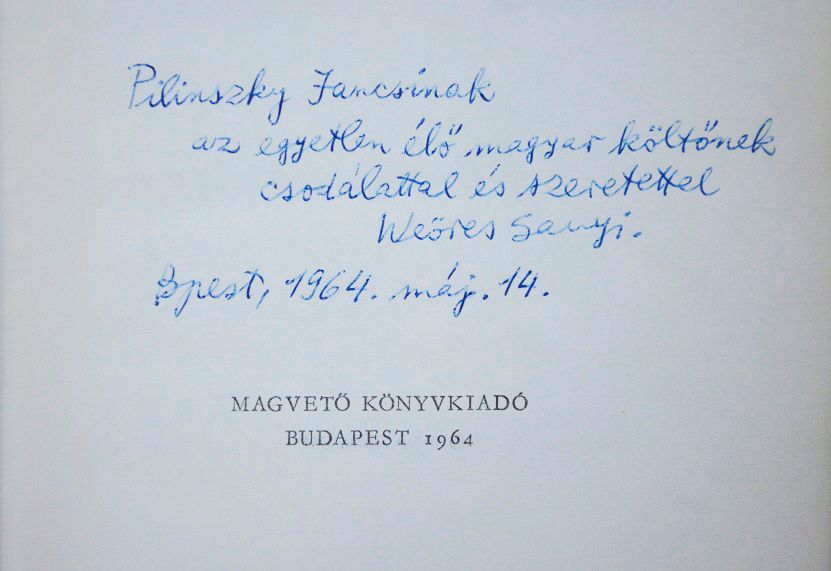 Pilinszky Jancsinak
az egyetlen élő magyar költőnek
csodálattal és szeretettel
Weöres Sanyi.
Bpest, 1964. máj. 14.
MAGVETŐ KÖNYVKIADÓ
BUDAPEST 1964